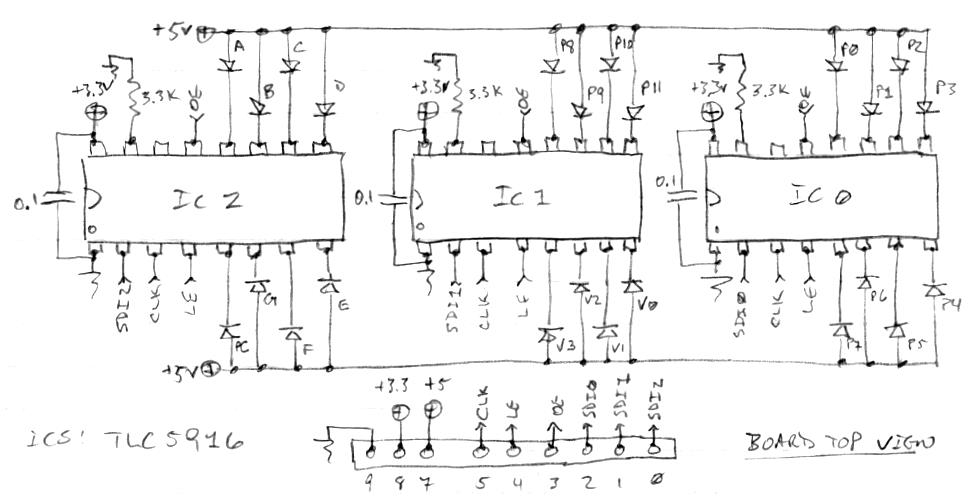 +5V
A
C
B
D
+3.3V
3.3K
OE
0.1
IC 2
SDI2
CLK
LE
PC
G
F
E
P8
P10
P9
P11
+3.3V
3.3K
OE
0.1
IC 1
SDI1
CLK
LE
V3
V2
V1
V0
P0
P2
P1
P3
+3.3V
3.3K
OE
0.1
IC 0
SDI0
CLK
LE
P7
P6
P5
P4
+5V
+3.3 +5 CLK LE OE SDI0 SDI1 SDI2
9 8 7 5 4 3 2 1 0
ICS: TLC5916
BOARD TOP VIEW